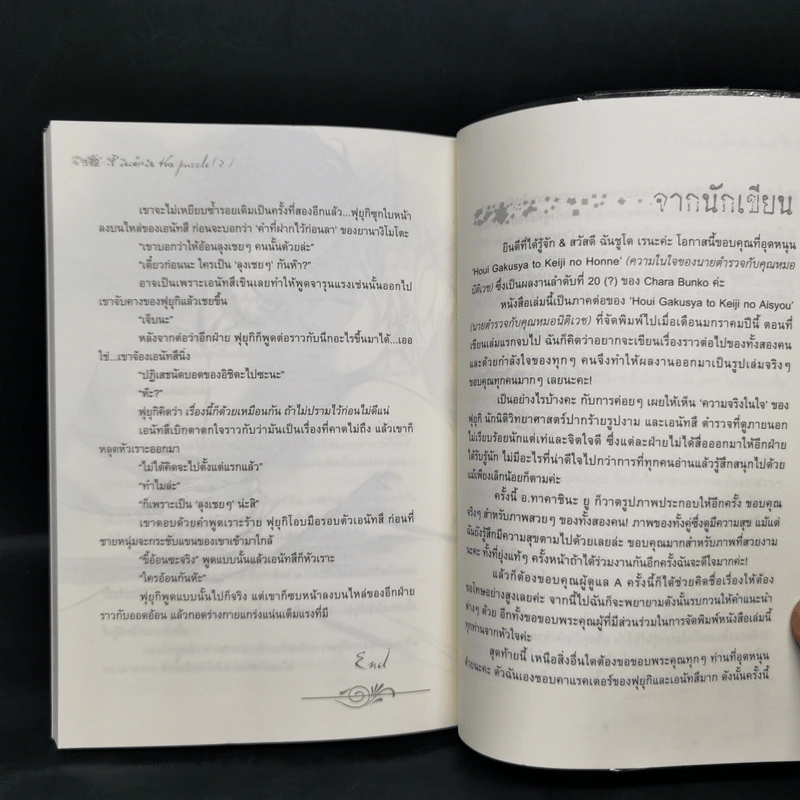 the puzzle (2)
เขาจะไม่เหยียบซ้ำรอยเดิมเป็นครั้งที่สองอีกแล้ว...ฟุยุกิซุกใบหน้า
ลงบนไหล่ของเอนัทสึ ก่อนจะบอกว่า ‘คำที่ฝากไว้ก่อนลา’ ของยานางิโมโตะ
“เขาบอกว่าให้อ้อนลุงเชยๆ คนนั้นด้วยล่ะ”
“เดี๋ยวก่อนนะ ใครเป็น ‘ลุงเชยๆ’ กันห๊า?”
อาจเป็นเพราะเอนัทสึเขินเลยทำให้พูดจารุนแรงเช่นนั้นออกไป
เขาจับคางของฟุยุกิแล้วเชยขึ้น
“เจ็บนะ”
หลังจากต่อว่าอีกฝ่าย ฟุยุกิก็พูดต่อราวกับนึกอะไรขึ้นมาได้...เออ
ใช่...เขาจ้องเอนัทสึนิ่ง
“ปฏิเสธนัดบอดของอิชิดะไปซะนะ”
“ห๊ะ?”
ฟุยุกิคิดว่า เรื่องนี้ก็ด้วยเหมือนกัน ถ้าไม่ปรามไว้ก่อนไม่ดีแน่
เอนัทสึเบิกตาตกใจราวกับว่ามันเป็นเรื่องที่คาดไม่ถึง แล้วเขาก็
หลุดหัวเราะออกมา
“ไม่ได้คิดจะไปตั้งแต่แรกแล้ว”
“ทำไมล่ะ”
“ก็เพราะเป็น ‘ลุงเชยๆ’ น่ะสิ”
เขาตอบด้วยคำพูดเราะร้าย ฟุยุกิโอบมือรอบตัวเอนัทสึ ก่อนที่
ชายหนุ่มจะกระชับแขนของเขาเข้ามาใกล้
“ขี้อ้อนซะจริง” พูดแบบนั้นแล้วเอนัทสึก็หัวเราะ
“ใครอ้อนกันห๊ะ”
ฟุยุกิพูดแบบนั้นไปก็จริง แต่เขาก็ซบหน้าลงบนไหล่ของอีกฝ่าย
ราวกับออดอ้อน แล้วกอดร่างกายแกร่งแน่นเต็มแรงที่มี
End
จากนักเขียน
ยินดีที่ได้รู้จัก & สวัสดี ฉันชูโด เรนะค่ะ โอกาสนี้ขอบคุณที่อุดหนุน
‘Houi Gakusya to Keiji no Honne’ (ความในใจของนายตำรวจกับคุณหมอ
นิติเวช) ซึ่งเป็นผลงานลำดับที่ 20 (?) ของ Chara Bunko ค่ะ
หนังสือเล่มนี้เป็นภาคต่อของ ‘Houi Gakusya to Keiji no Aisyou’
(นายตำรวจกับคุณหมอนิติเวช) ที่จัดพิมพ์ไปเมื่อเดือนมกราคมปีนี้ ตอนที่
เขียนเล่มแรกจบไป ฉันก็คิดว่าอยากจะเขียนเรื่องราวต่อไปของทั้งสองคน
และด้วยกำลังใจของทุกๆ คนจึงทำให้ผลงานออกมาเป็นรูปเล่มจริงๆ
ขอบคุณทุกคนมากๆ เลยนะคะ!
เป็นอย่างไรบ้างคะ กับการค่อยๆ เผยให้เห็น ‘ความจริงในใจ’ ของ
ฟุยุกิ นักนิติวิทยาศาสตร์ปากร้ายรูปงาม และเอนัทสึ ตำรวจที่ดูภายนอก
ไม่เรียบร้อยนักแต่เท่และจิตใจดี ซึ่งแต่ละฝ่ายไม่ได้สื่อออกมาให้อีกฝ่าย
ได้รับรู้นัก ไม่มีอะไรที่น่าดีใจไปกว่าการที่ทุกคนอ่านแล้วรู้สึกสนุกไปด้วย
แม้เพียงเล็กน้อยก็ตามค่ะ
ครั้งนี้ อ.ทาคาชินะ ยู ก็วาดรูปภาพประกอบให้อีกครั้ง ขอบคุณ
จริงๆ สำหรับภาพสวยๆ ของทั้งสองคน! ภาพของทั้งคู่ซึ่งดูมีความสุข แม้แต่
ฉันยังรู้สึกมีความสุขตามไปด้วยเลยล่ะ ขอบคุณมากสำหรับภาพที่สวยงาม
นะคะ ทั้งที่ยุ่งแท้ๆ ครั้งหน้าถ้าได้ร่วมงานกันอีกครั้งฉันจะดีใจมากค่ะ!
แล้วก็ต้องขอบคุณผู้ดูแล A ครั้งนี้ก็ได้ช่วยคิดชื่อเรื่องให้ต้อง
ขอโทษอย่างสูงเลยค่ะ จากนี้ไปฉันก็จะพยายามดังนั้นรบกวนให้คำแนะนำ
ต่างๆ ด้วย อีกทั้งขอขอบพระคุณผู้ที่มีส่วนร่วมในการจัดพิมพ์หนังสือเล่มนี้
ทุกท่านจากหัวใจค่ะ
สุดท้ายนี้ เหนือสิ่งอื่นใดต้องขอขอบพระคุณทุกๆ ท่านที่อุดหนุน
ด้วยนะคะ ตัวฉันเองชอบคาแรคเตอร์ของฟุยุกิและเอนัทสึมาก ดังนั้นครั้งนี้